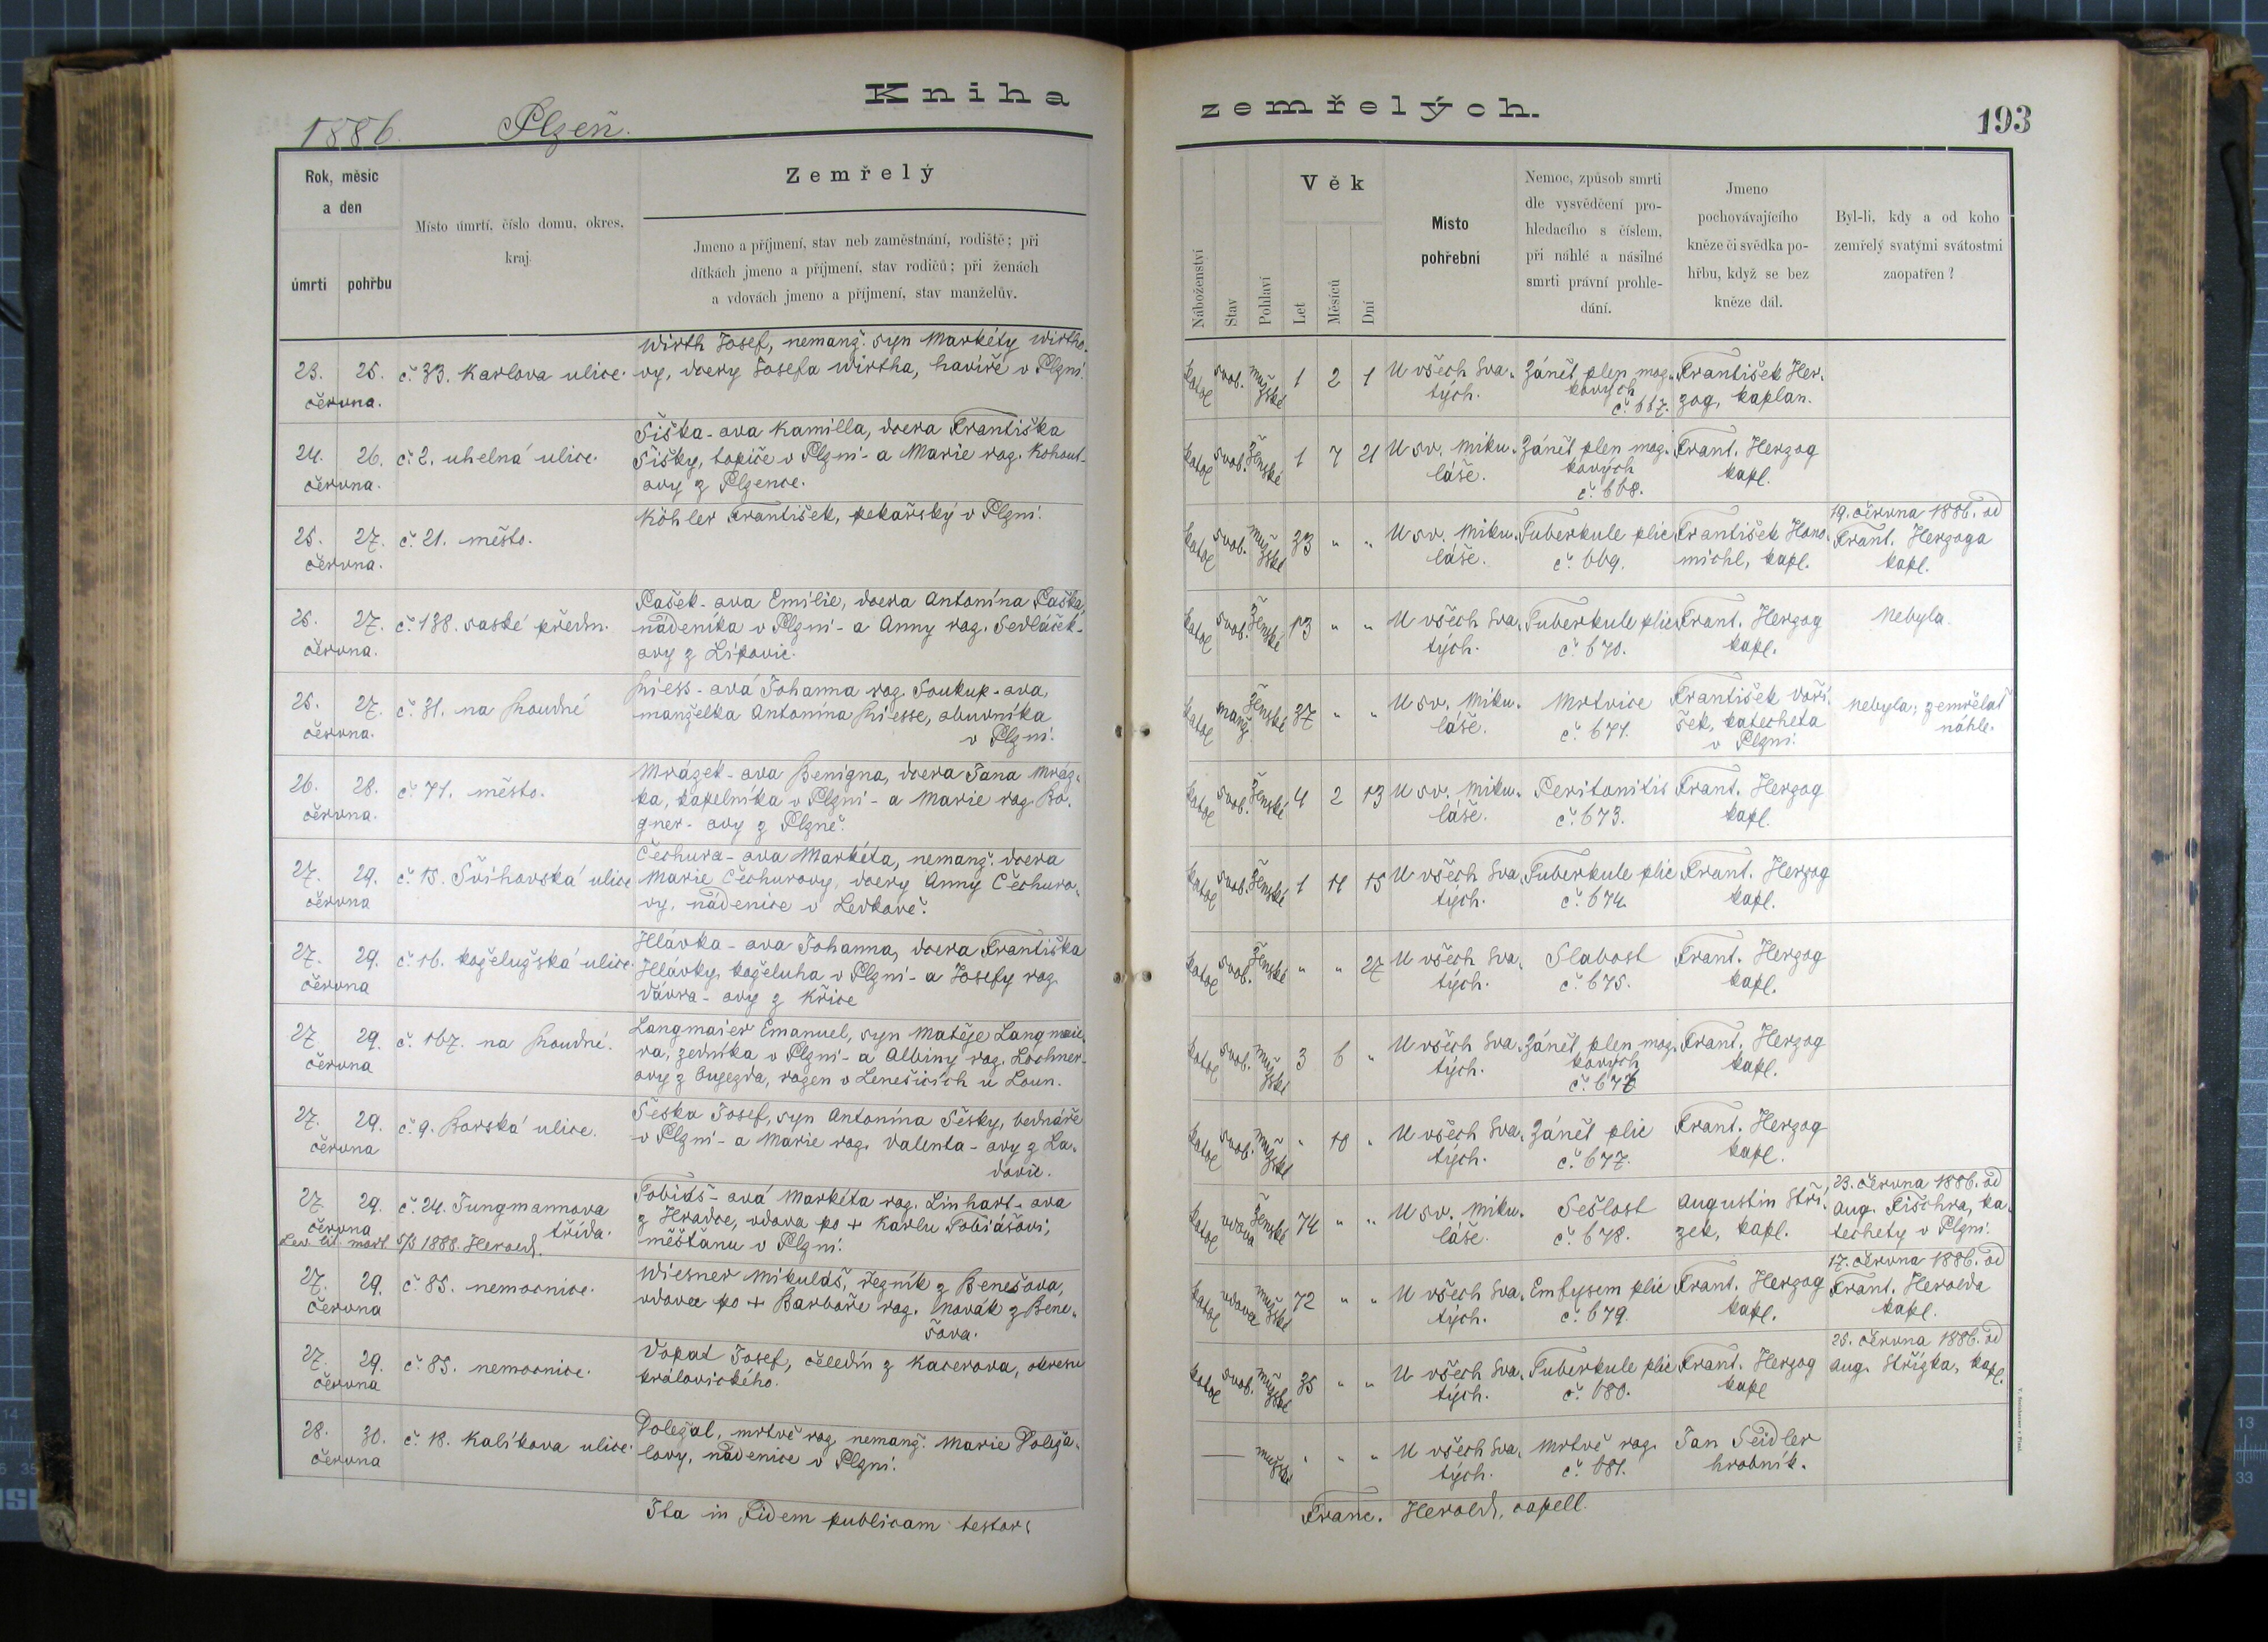 Kniha
zemřelých.
193
1886. Plzeň.
Rok, měsíc
a den
úmrtí
pohřbu
Místo úmrtí, číslo domu, okres,
kraj.
Zemřelý
Jmeno a příjmení, stav neb zaměstnání, rodiště; při
dítkách jmeno a příjmení, stav rodičů; při ženách
a vdovách jmeno a příjmení, stav manželův.
Náboženství
Stav
Pohlaví
Věk
Let
Měsíců
Dní
Místo
pohřební
Nemoc, způsob smrti
dle vysvědčení pro-
hledacího s číslem,
při náhlé a násilné
smrti právní prohle-
dání.
Jmeno
pochovávajícího
kněze či svědka po-
hřbu, když se bez
kněze dál.
Byl-li, kdy a od koho
zemřelý svatými svátostmi
zaopatřen?
Wirth Josef, nemanž. syn Markéty Wirtho-
23. 25. č. 33. Karlova ulice. vy, dcery Josefa Wirtha, havíře v Plzni.
června.
katol svob. mužské 1 2 1 U všech Sva- Zánět plen moz- František Her-
tých. kových zog, kaplan.
č. 667.
Šiška-ova Kamilla, dcera Františka
24. 26. č. 2. uhelná ulice. Šišky, topiče v Plzni - a Marie roz. Kohout-
června. ovy z Plzence.
katol svob. Ženské 1 7 21 U sv. Miku- Zánět plen moz- Frant. Herzog
láše. kových kapl.
č. 668.
Köhler František, pekařský v Plzni.
25. 27. č. 21. město.
června.
19. června 1886. od
katol svob. mužské 33 " " U sv. Miku- Tuberkule plic František Hono- Frant. Herzoga
láše. č. 669. michl, kapl. kapl.
Pašek-ova Emilie, dcera Antonína Paška,
25. 27. č. 138. saské předm. nádeníka v Plzni - a Anny roz. Sedláček-
června. ovy z Lipovic.
katol svob. Ženské 13 " " U všech Sva- Tuberkule plic Frant. Herzog Nebyla.
tých. č. 670. kapl.
-ová Johanna roz. Soukup-ova,
25. 27. č. 31. na Roudné manželka Antonína obuvníka
června. v Plzni.
katol manž. Ženské 37 " " U sv. Miku- Mrtvice František Voří- Nebyla; zemřelať
láše. č. 671. šek, katecheta náhle.
v Plzni.
Mrázek-ova Benigna, dcera Jana Mráz-
26. 28. č. 71. město. ka, kapelníka v Plzni - a Marie roz. Bo-
června. gner-ovy z Plzně.
katol svob. Ženské 4 2 13 U sv. Miku- Peritonitis Frant. Herzog
láše. č. 673. kapl.
Čechura-ova Markéta, nemanž. dcera
27. 29. č. 15. Švihovská ulice Marie Čechurovy, dcery Anny Čechuro-
června vy, nádenice v Ledkově.
katol svob. Ženské 1 11 15 U všech Sva- Tuberkule plic Frant. Herzog
tých. č. 674. kapl.
Hlávka-ova Johanna, dcera Františka
27. 29. č. 16. koželužská ulice. Hlávky, koželuha v Plzni - a Josefy roz.
června Vávra-ovy z Křice
katol svob. Ženské " " 27 U všech Sva- Slabost Frant. Herzog
tých. č. 675. kapl.
Langmaier Emanuel, syn Matěje Langmaie-
27 29. č. 167. na Roudné. ra, zedníka v Plzni - a Albiny roz. Lochner-
června ovy z Oujezda, rozen v Lenešicích u Loun.
katol svob. mužské 3 6 " U všech Sva- Zánět plen moz- Frant. Herzog
tých. kových kapl.
č. 676
Šeska Josef, syn Antonína Šesky, bednáře
27. 29. č. 9. Borská ulice. v Plzni - a Marie roz. Valenta-ovy z La-
června dovic.
katol svob. mužské " 10 " U všech Sva- Zánět plic Frant. Herzog
tých. č. 677. kapl.
Tobiáš-ová Markéta roz. Linhart-ova
27. 29. č. 24. Jungmannova z Hradce, vdova po + Karlu Tobiášovi,
června třída. měšťanu v Plzni.
Lev. lit. mort. 5/3 1888. Herold.
23. června 1886. od
katol vdova Ženské 74 " " U sv. Miku- Sešlost Augustin Stří- Aug. Fischra, ka-
láše. č. 678. zek, kapl. techety v Plzni.
Wiesner Mikuláš, řezník z Benešova,
27. 29. č. 85. nemocnice. vdovec po + Barboře roz. Novák z Bene-
června šova.
17. června 1886. od
katol vdovec mužské 72 " " U všech Sva- Emfysem plic Frant. Herzog Frant. Herolda
tých. č. 679. kapl. kapl.
27. 29. č. 85. nemocnice. Vopat Josef, čeledín z Kacerova, okresu
června královického.
25. června 1886. od
katol svob. mužské 35 " " U všech Sva- Tuberkule plic Frant. Herzog Aug. Střízka, kapl.
tých. č. 680. kapl
28. 30. č. 18. Kalikova ulice. Doležal, mrtvě roz. nemanž. Marie Doleža-
června lovy, nádenice v Plzni.
— mužské " " " U všech Sva- Mrtvě roz. Jan Seidler
tých. č. 681. hrobník.
Ita in Fidem publicam testor:
Franc. Herold, capell.